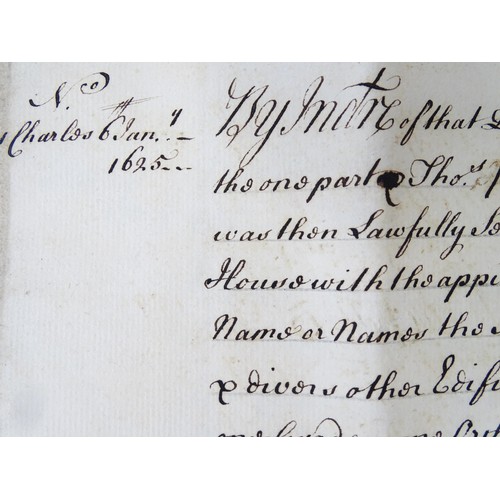 N.o
1 Charles 6th Jan.y
1625
By Indre of that D
the one part & Tho.s P
was then Lawfully Se
House with the appu
Name or Names the
& divers other Edifi